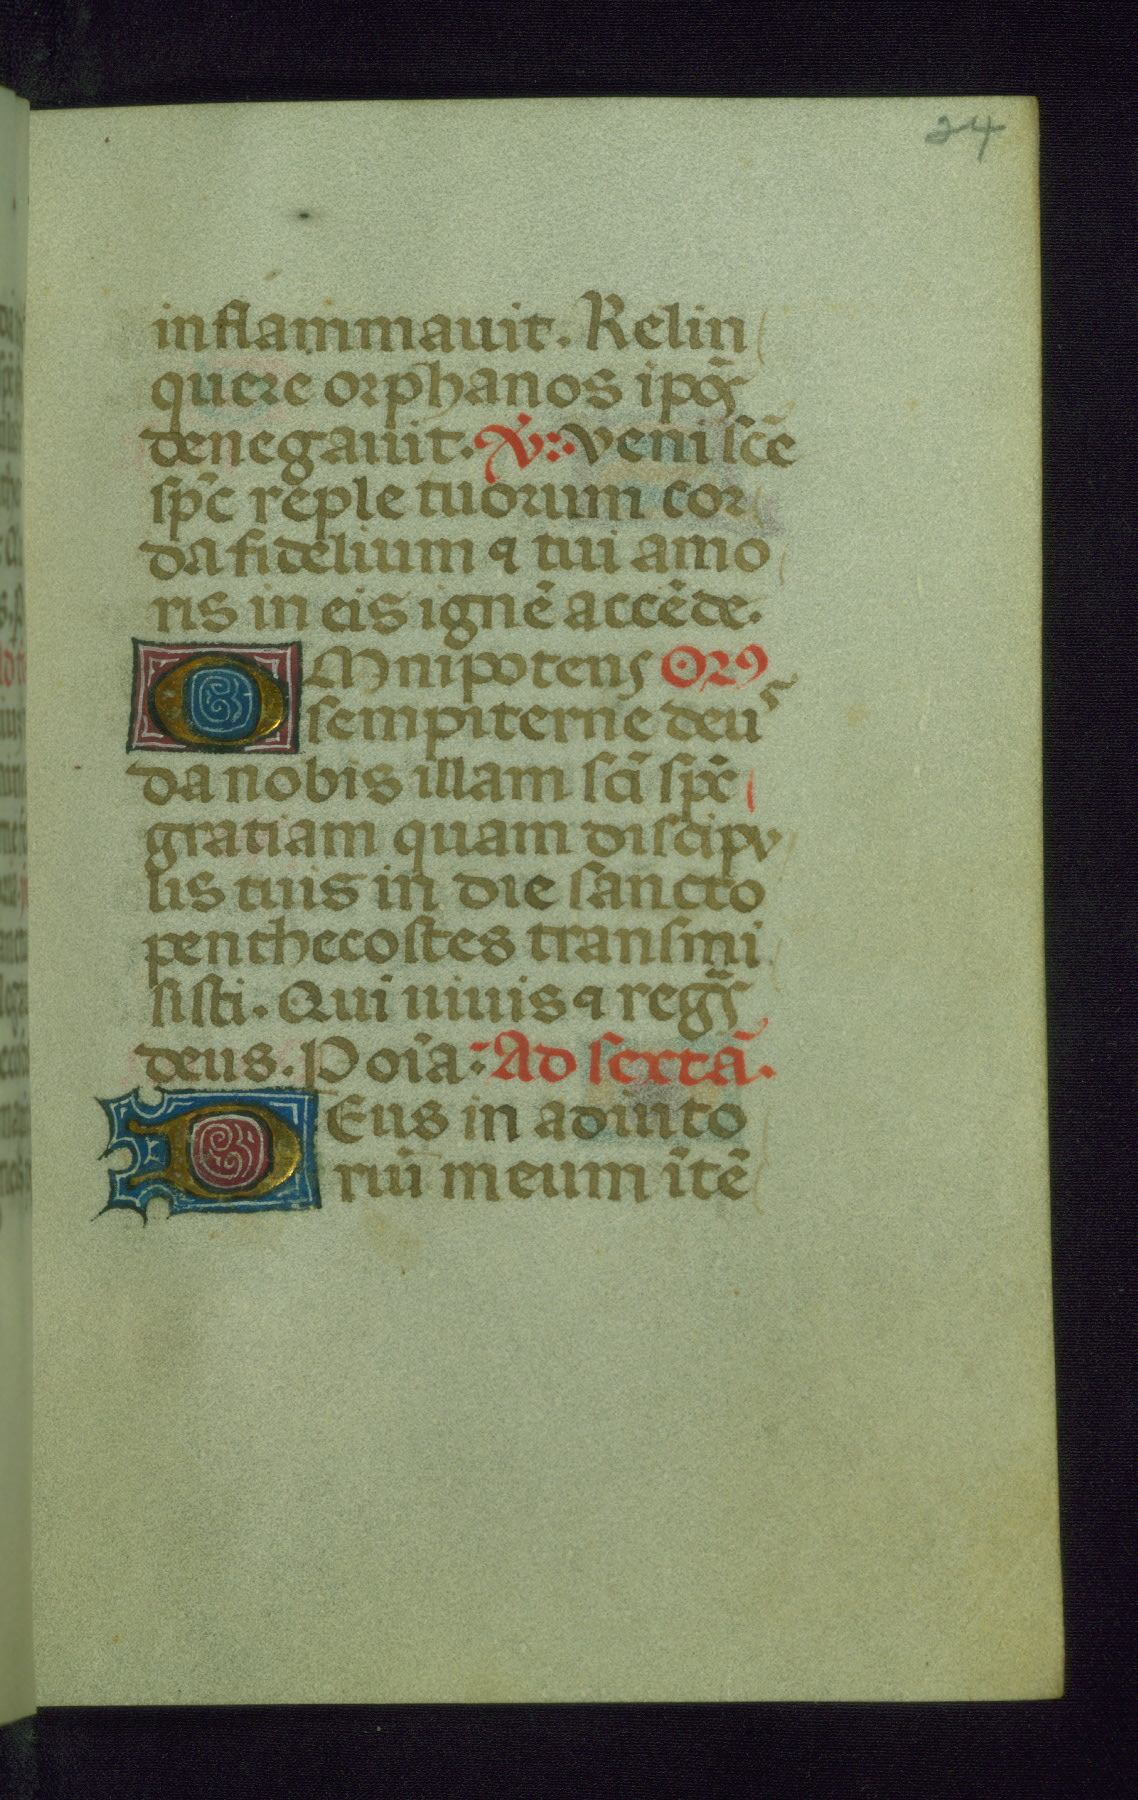 24
inflammauit. Relin
quere orphanos ipōs
denegauit. V̄: veni sc̄e
sp̄c reple tuorum cor
da fidelium ⁊ tui amo
ris in eis ignē accēde.
OMnipotens Orꝯ
sempiterne deus
da nobis illam sc̄i sp̄c
gratiam quam discipv
lis tuis in die sancto
penthecostes transmi
sisti. Qui uiuis ⁊ regḡs
deus. P oīa: Ad sextā.
DEus in adiuto
riū meum ītē